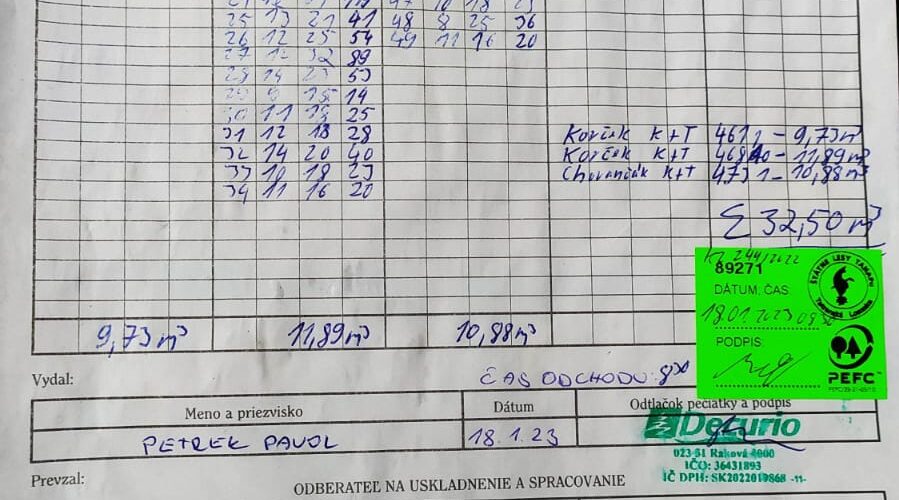 25 13 21 41 48 8 25 36
26 12 25 54 49 11 16 20
27 12 32 89
28 14 23 53
29 9 15 14
30 11 18 25
31 12 18 28
32 14 20 40
33 10 18 23
34 11 16 20
Korček K+T 461 - 9,73 m³
Korček K+T 468 - 11,89 m³
K+T 473 - 10,88 m³
Σ 32,50 m³
244/2022
89271
DÁTUM, ČAS:
18.01.2023
PODPIS:
ŠTÁTNE LESY TANAPu
PEFC™
9,73 m³ 11,89 m³ 10,88 m³
Vydal:
ČAS ODCHODU:
Meno a priezvisko Dátum Odtlačok pečiatky a podpis
PETREK PAVOL 18.1.23
Decurio
023 51 Raková 4000
IČO: 36431893
IČ DPH: SK2022019868 -11-
Prevzal:
ODBERATEĽ NA USKLADNENIE A SPRACOVANIE